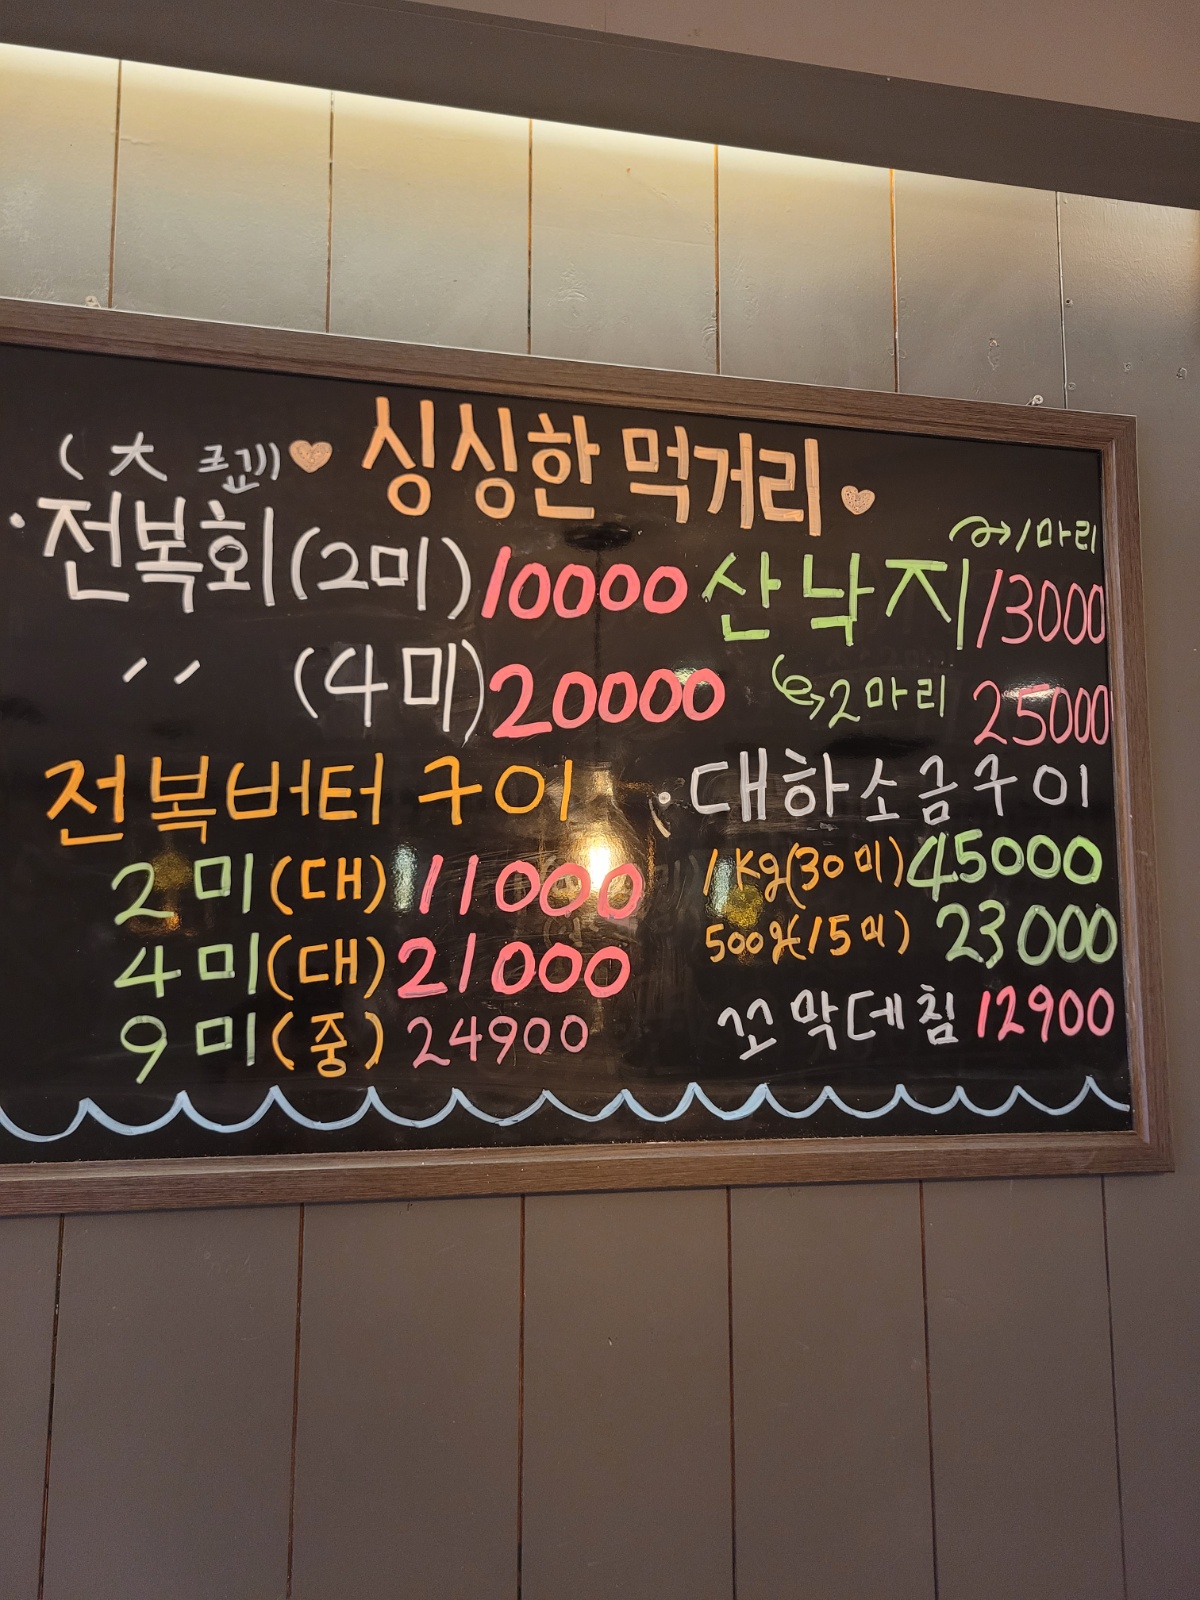 싱싱한 먹거리
(大
·전복회(2미) 10000
〃 (4미) 20000
전복버터 구이
2미(대) 11000
4미(대) 21000
9미(중) 24900
산낙지 →1마리 13000
→2마리 25000
대하소금구이
1kg(30미) 45000
500g(15미) 23000
꼬막데침 12900